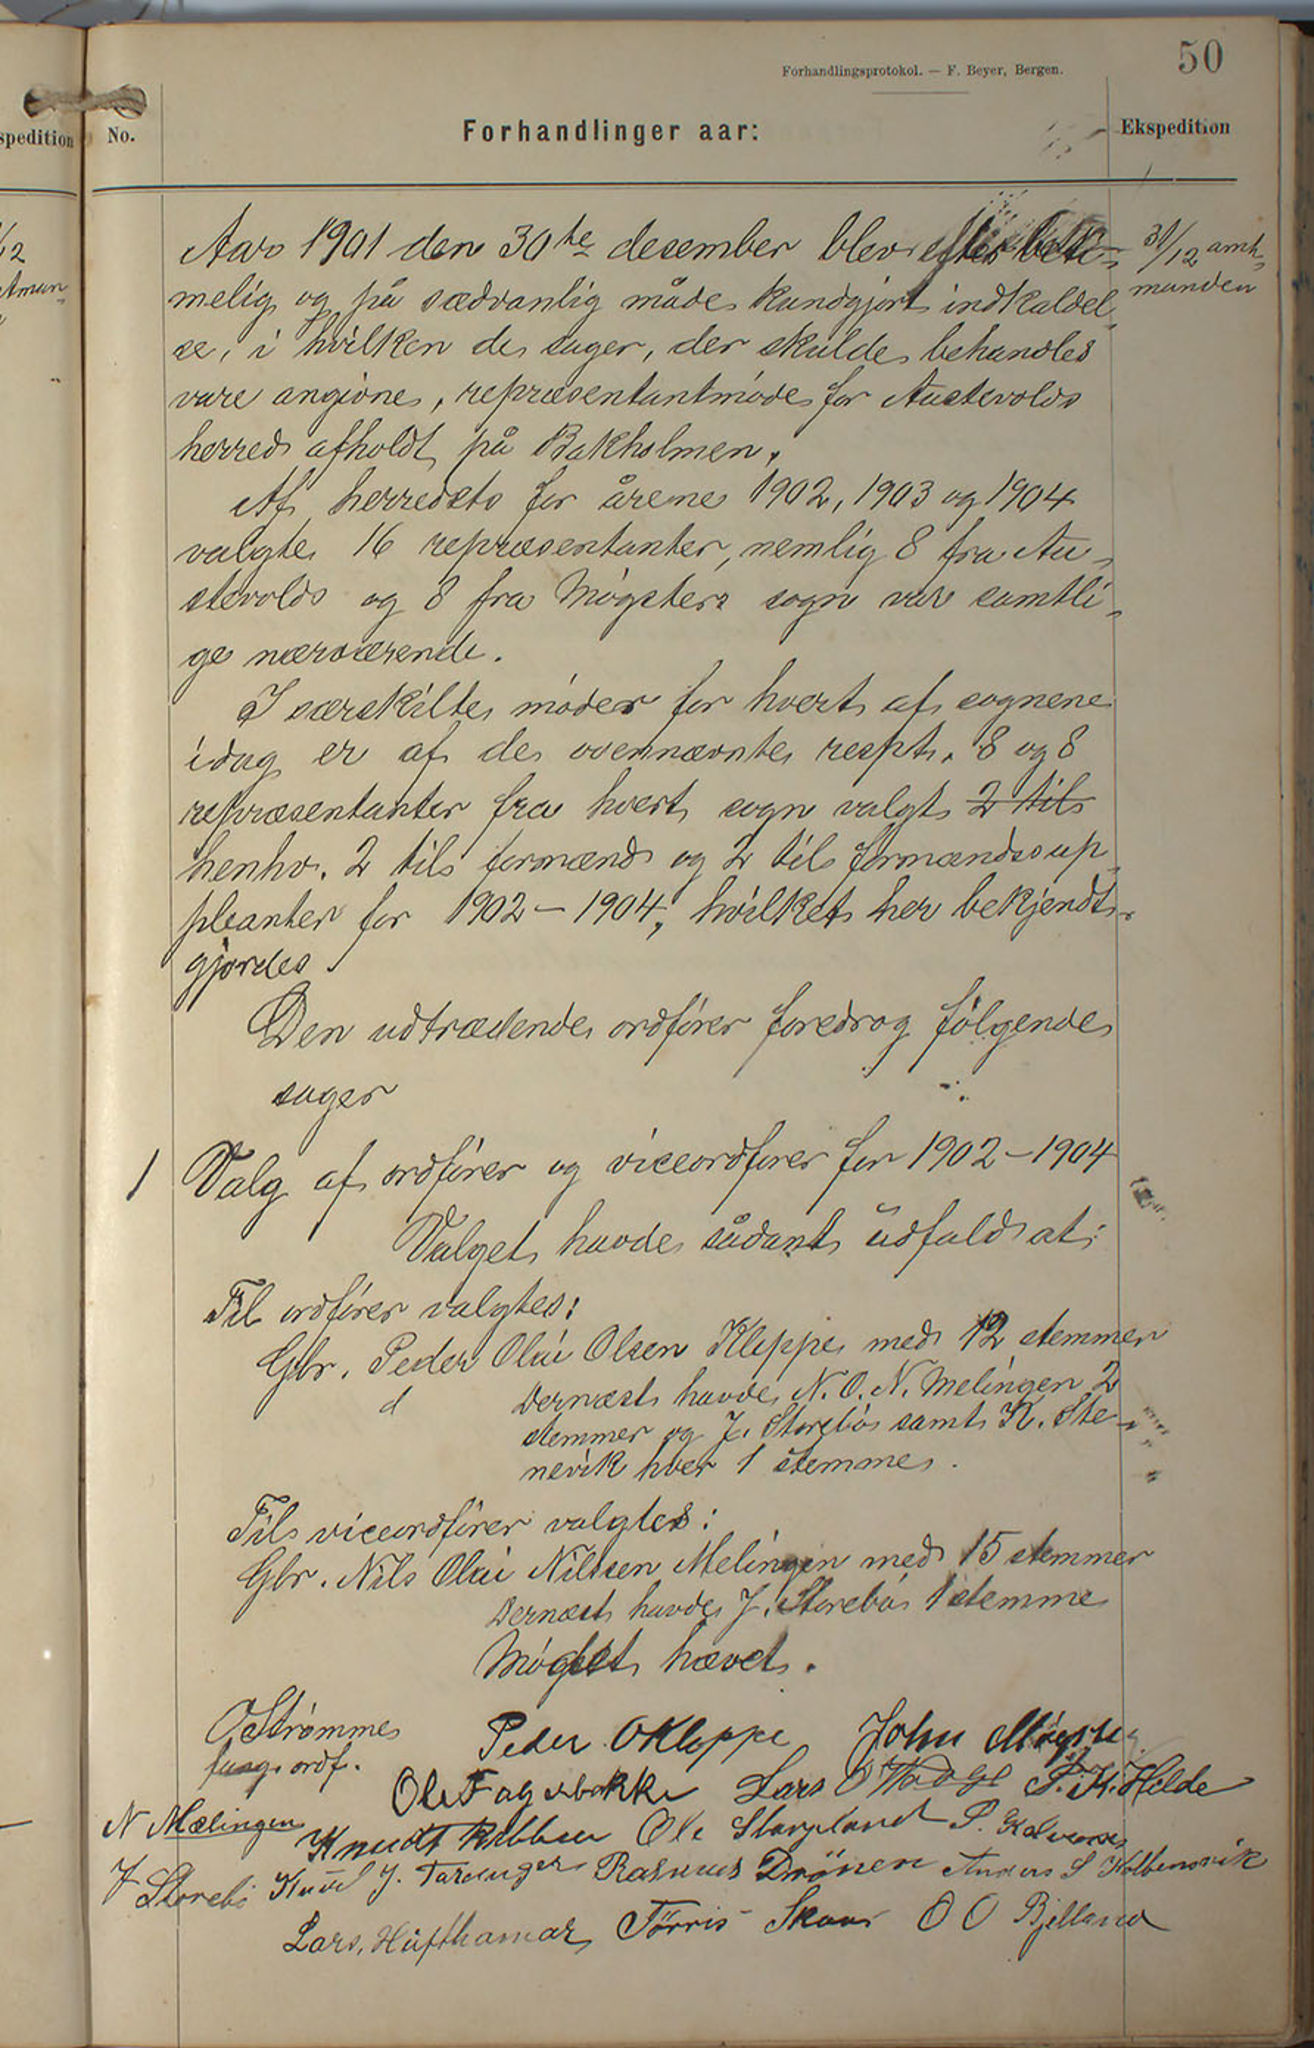 50
Forhandlingsprotokol. — F. Beyer, Bergen.
spedition No. Forhandlinger aar: Ekspedition
Aar 1901 den 30te desember blev efter beti-
melig og på sædvanlig måde kundgjort indkaldel-
se, i hvilken de sager, der skulde behandles
vare angivne, repræsentantmøde for Austevolds
herred afholdt på Bakholmen.
31/12 amt-
manden
Af herredets for årene 1902, 1903 og 1904
valgte 16 repræsentanter, nemlig 8 fra Au-
stevolds og 8 fra Møgsters sogn var samtli-
ge nærværende.
I særskilte møder for hvert af sognene
idag er af de ovennævnte respt. 8 og 8
repræsentanter fra hvert sogn valgt 2 til
henhv. 2 til formænd og 2 til formandssup-
pleanter for 1902 – 1904, hvilket her bekjendt-
gjordes.
Den udtrædende ordfører foredrog følgende
sager
1 Valg af ordfører og viceordfører for 1902 – 1904
Valget havde sådant udfald at:
Til ordfører valgtes:
Gbr. Peder Olai Olsen Kleppe med 12 stemmer
Dernæst havde N. O. N. Melingen 2
stemmer og J. Storebø samt K. Ste-
nevik hver 1 stemme.
Til viceordfører valgtes:
Gbr. Nils Olai Nilssen Melingen med 15 stemmer
Dernæst havde J. Storebø 1 stemme
Mødet hævet.
O Strømme Peder O Kleppe John Møgster
fung. ordf.
Ole Fagerbakke Lars O P. K. Hilde
N Mælingen Knudt Ole P. Kalvenes
J Storebø Knud J. Taranger Rasmus Drønen Anders S Kolbensvik
Lars Hufthamar Tørris Skaar O O Bjelland